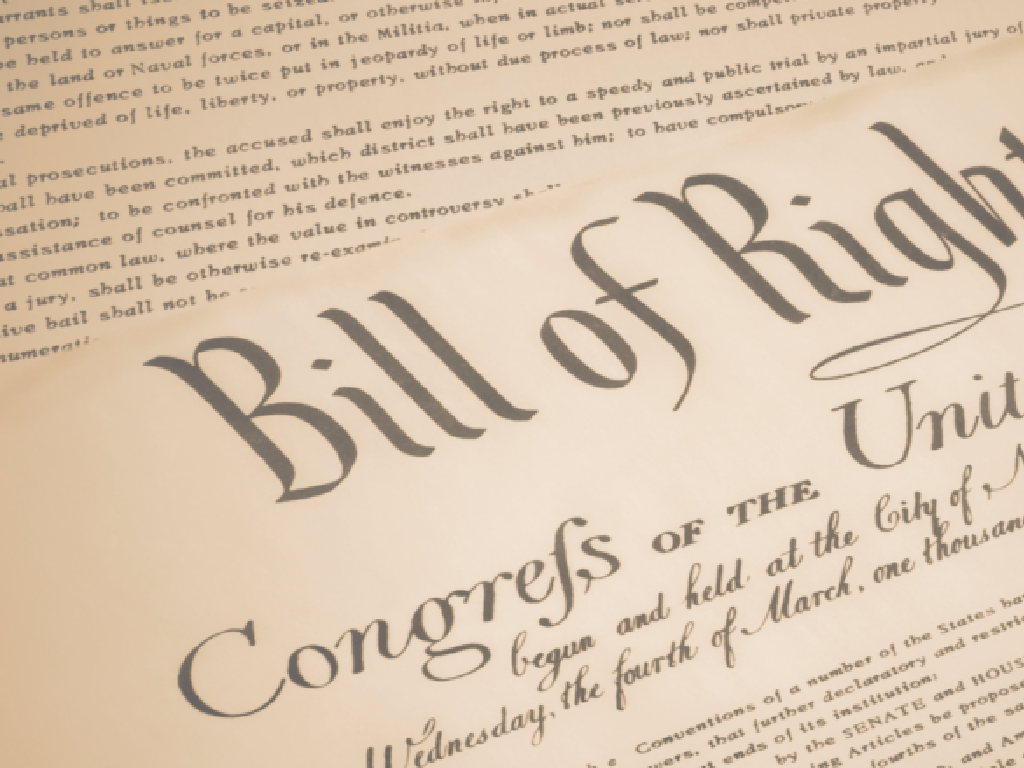 persons or things to be seized.
be held to answer for a capital, or otherwise
the land or Naval forces, or in the Militia, when in actual
same offence to be twice put in jeopardy of life or limb; nor shall be
deprived of life, liberty, or property, without due process of law; nor shall private property
prosecutions, the accused shall enjoy the right to a speedy and public trial by an impartial jury of
have been committed, which district shall have been previously ascertained by law,
to be confronted with the witnesses against him; to have
assistance of counsel for his defence.
common law, where the value in controversy
a jury, shall be otherwise
bail shall not be
Bill of
Congreſs OF THE
begun and held at the City of
Wednesday, the fourth of March, one
Conventions of a number of the States
that further declaratory and
ends of its institution:
by the SENATE and
Articles be
of the
and